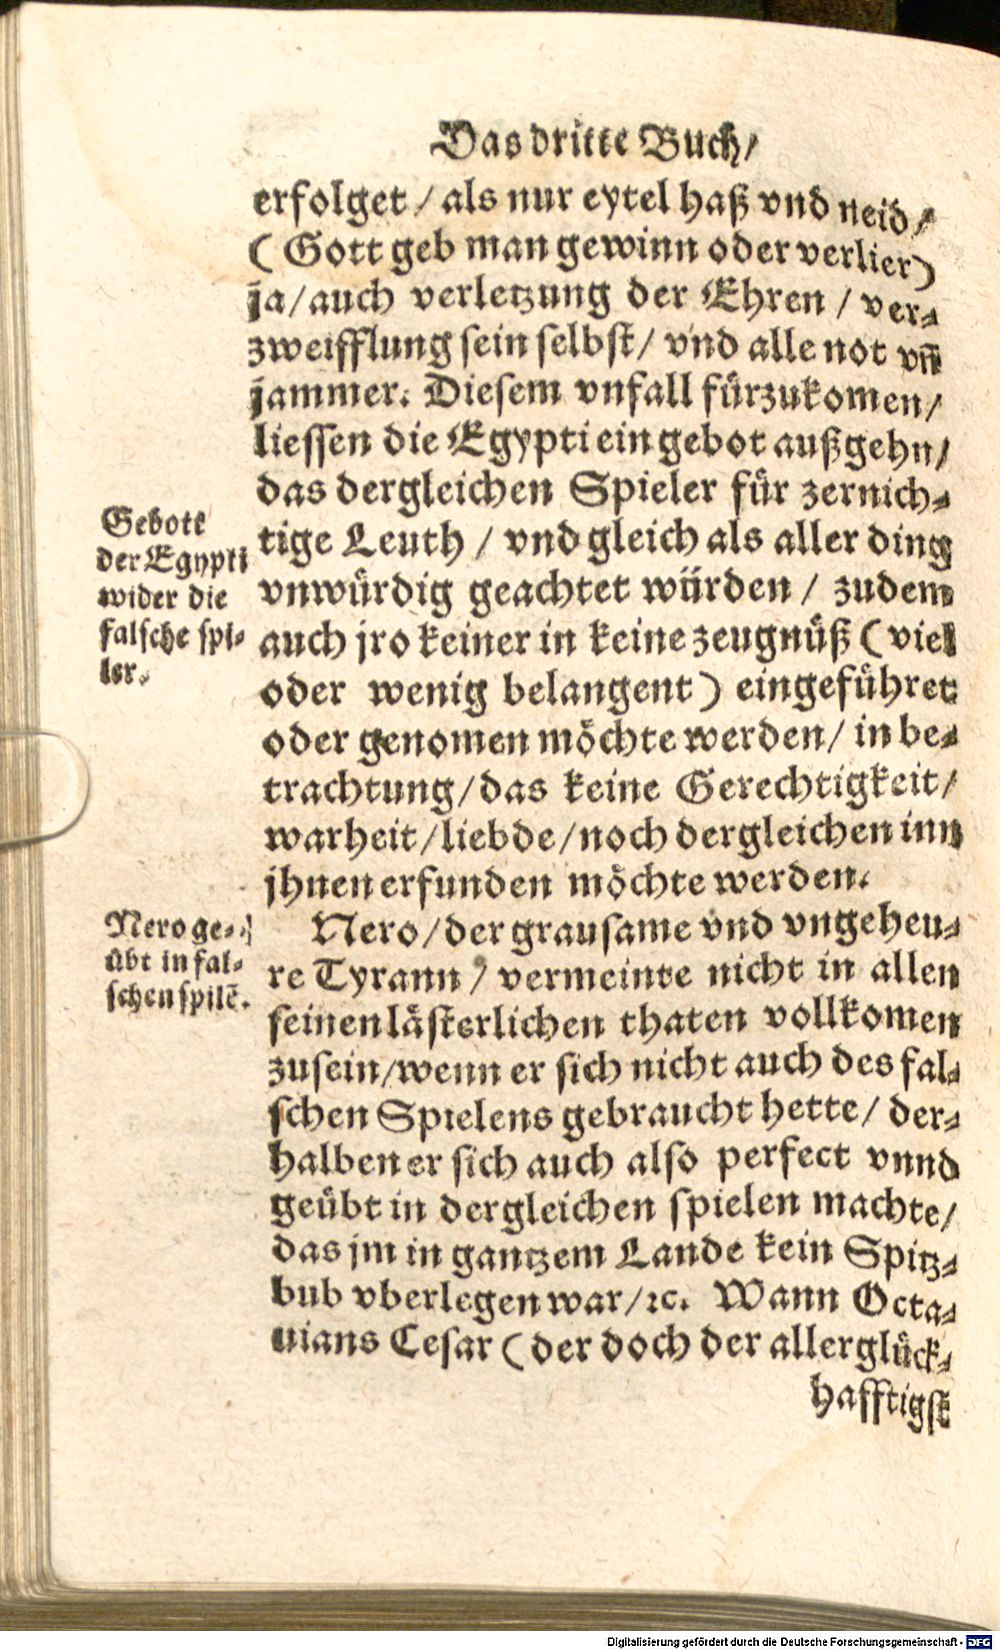 Das dritte Buch/
erfolget / als nur eytel haß vnd neid /
( Gott geb man gewinn oder verlier )
ja/auch verletzung der Ehren / ver⸗
zweifflung sein selbst/ vnd alle not vñ
jammer. Diesem vnfall fürzukomen/
liessen die Egypti ein gebot außgehn/
das dergleichen Spieler für zernich⸗
tige Leuth / vnd gleich als aller ding
vnwürdig geachtet würden / zudem
auch jro keiner in keine zeugnüß ( viel
oder wenig belangent ) eingeführet
oder genomen möchte werden/ in be⸗
trachtung/das keine Gerechtigkeit/
warheit/liebde/noch dergleichen inn
jhnen erfunden möchte werden.
Gebott
der Egypti
wider die
falsche spi⸗
ler.
Nero/der grausame vnd vngeheu⸗
re Tyrann / vermeinte nicht in allen
seinen lästerlichen thaten vollkomen
zusein/wenn er sich nicht auch des fal⸗
schen Spielens gebraucht hette/ der⸗
halben er sich auch also perfect vnnd
geübt in dergleichen spielen machte/
das jm in gantzem Lande kein Spitz⸗
bub vberlegen war/ꝛc. Wann Octa⸗
uians Cesar ( der doch der allerglück⸗
Nero ge⸗
übt in fal⸗
schen spilẽ.
hafftigst
Digitalisierung gefördert durch die Deutsche Forschungsgemeinschaft - DFG